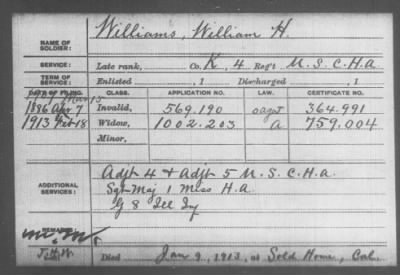 NAME OF SOLDIER: Williams, William H.
SERVICE: Late rank, Co. K, 4 Reg't U.S.C.H.A.
TERM OF SERVICE: Enlisted , 1 Discharged , 1
DATE OF FILING. CLASS. APPLICATION NO. LAW. CERTIFICATE NO.
1907 Mar 15
1886 Apr 7 Invalid, 569.190 364.991
1913 Feb 18 Widow, 1002.203 A 759.004
Minor,
ADDITIONAL SERVICES: Adjt 4 & Adjt 5 U.S.C.H.A.
Sgt Maj 1 Miss H.A.
G 8 Ill Inf
REMARKS:
Died Jan 9, 1913, at Sold Home, Cal.